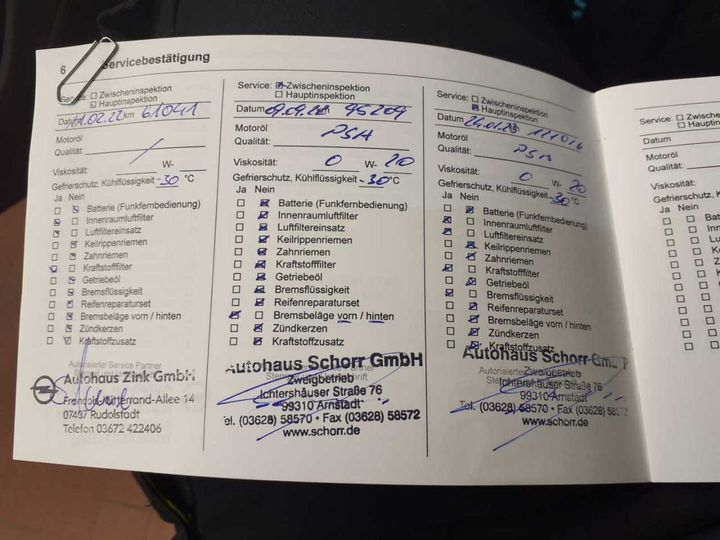 6
Servicebestätigung
Service: Zwischeninspektion
Hauptinspektion
Datum 11.02.22 km 61041
Motoröl
Qualität:
Viskosität: W-
Gefrierschutz, Kühlflüssigkeit -30 °C
Ja Nein
Batterie (Funkfernbedienung)
Innenraumluftfilter
Luftfiltereinsatz
Keilrippenriemen
Zahnriemen
Kraftstofffilter
Getriebeöl
Bremsflüssigkeit
Reifenreparaturset
Bremsbeläge vorn / hinten
Zündkerzen
Kraftstoffzusatz
Autorisierter Service Partner
Autohaus Zink GmbH
François-Mitterrand-Allee 14
07407 Rudolstadt
Telefon 03672 422406
Service: Zwischeninspektion
Hauptinspektion
Datum 09.09.22 95209
Motoröl
Qualität: PSA
Viskosität: 0 W- 20
Gefrierschutz, Kühlflüssigkeit -30°C
Ja Nein
Batterie (Funkfernbedienung)
Innenraumluftfilter
Luftfiltereinsatz
Keilrippenriemen
Zahnriemen
Kraftstofffilter
Getriebeöl
Bremsflüssigkeit
Reifenreparaturset
Bremsbeläge vorn / hinten
Zündkerzen
Kraftstoffzusatz
Autohaus Schorr GmbH
Zweigbetrieb
Ichtershäuser Straße 76
99310 Arnstadt
Tel. (03628) 58570 • Fax (03628) 58572
www.schorr.de
Service: Zwischeninspektion
Hauptinspektion
Datum
Motoröl
Qualität: PSA
Viskosität: 0 W- 20
Gefrierschutz, Kühlflüssigkeit -30°C
Ja Nein
Batterie (Funkfernbedienung)
Innenraumluftfilter
Luftfiltereinsatz
Keilrippenriemen
Zahnriemen
Kraftstofffilter
Getriebeöl
Bremsflüssigkeit
Reifenreparaturset
Bremsbeläge vorn / hinten
Zündkerzen
Kraftstoffzusatz
Autohaus Schorr
Zweigbetrieb
Ichtershäuser Straße 76
99310 Arnstadt
Tel. (03628) 58570 • Fax (03628)
www.schorr.de
Service:
Datum
Motoröl
Qualität:
Viskosität:
Gefrierschutz,
Ja Nein